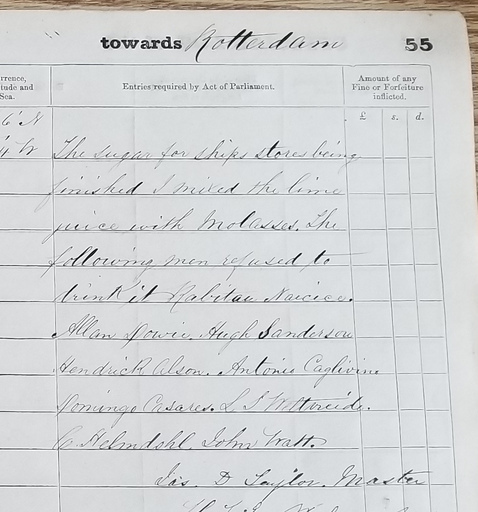 towards Rotterdam 55
rrence,
tude and
Sea.
Entries required by Act of Parliament.
Amount of any
Fine or Forfeiture
inflicted.
£ s. d.
6' N
4' W
The sugar for ships stores being
finished I mixed the lime
juice with Molasses. The
following men refused to
drink it
Allan Dowie. Hugh Sanderson
Hendrick Olson. Antonio
Domingo Casares. L S
C. Helmdohl. John Watt.
Jas. D Taylor. Master